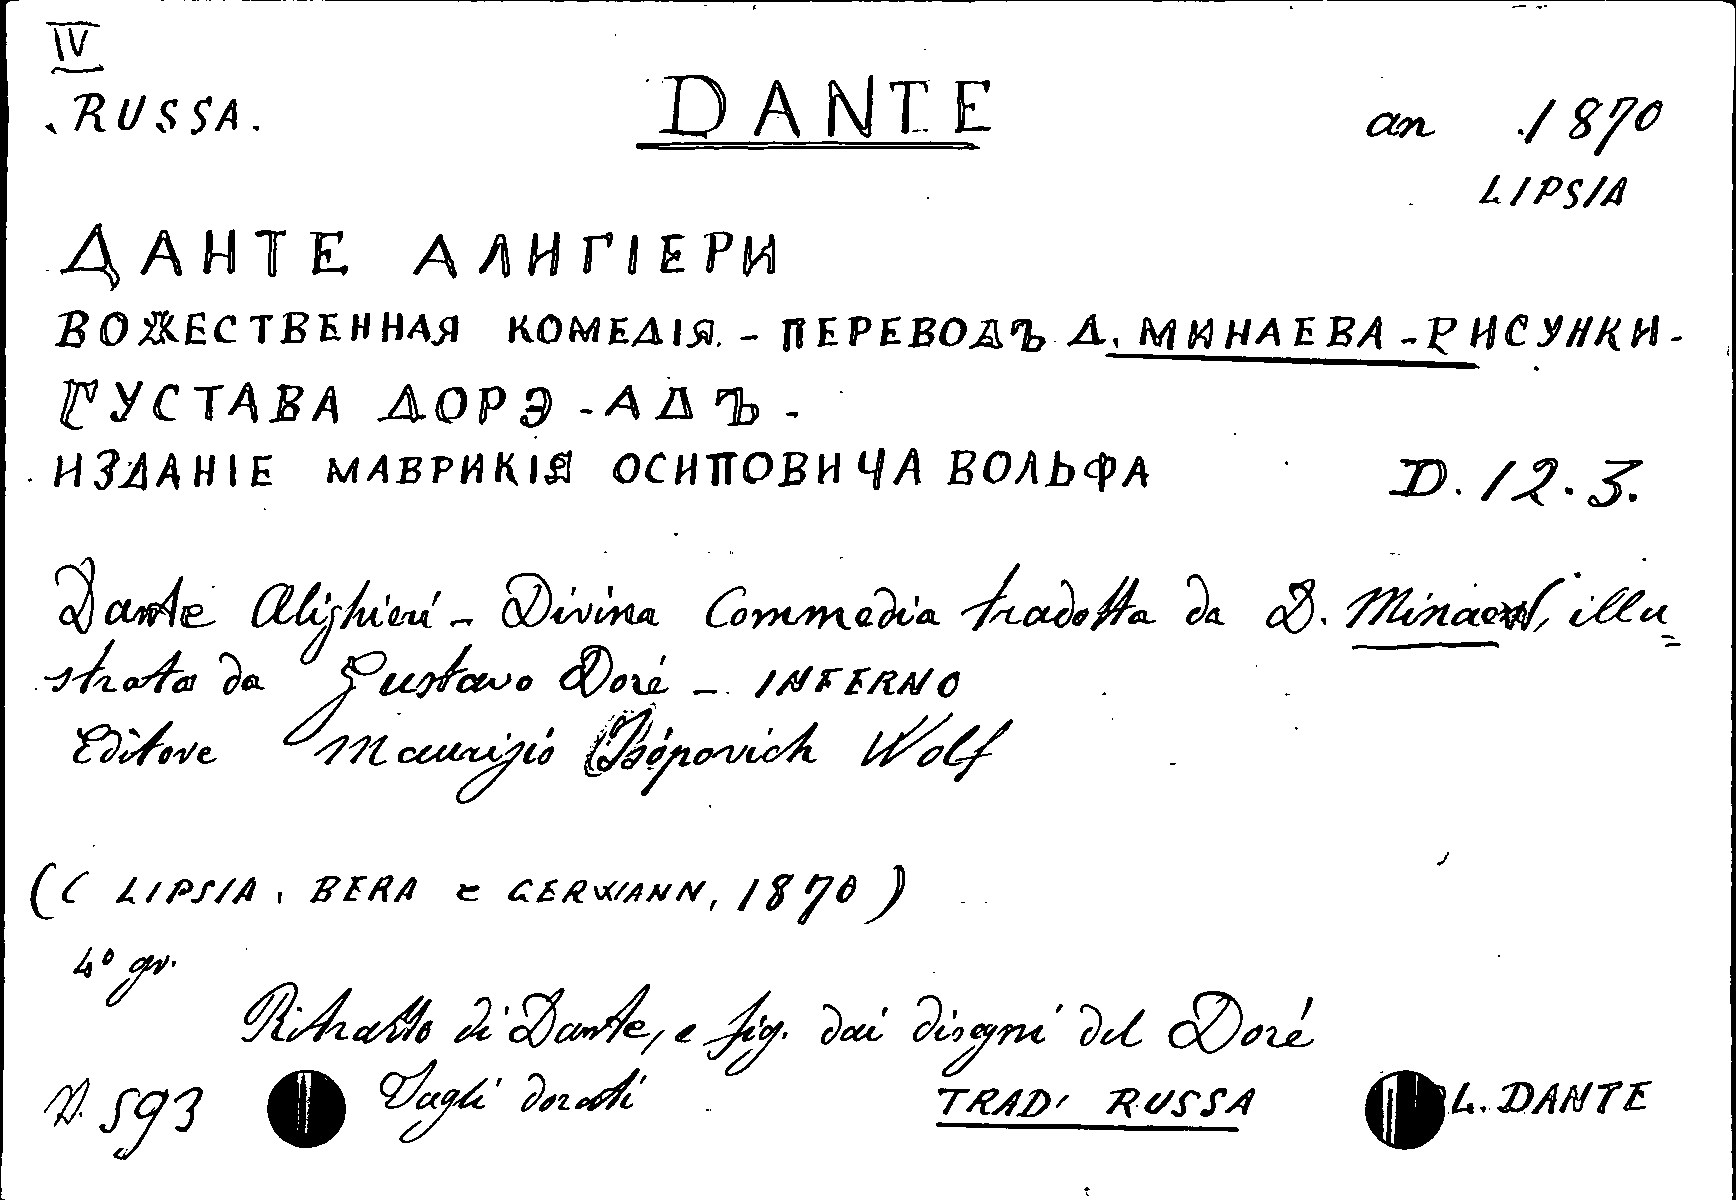 IV
RUSSA.
DANTE
an 1870
LIPSIA
ДАНТЕ АЛИГІЕРИ
ВОЖЕСТВЕННАЯ КОМЕДІЯ. - ПЕРЕВОДЪ Д. МИНАЕВА - РИСУНКИ -
ГУСТАВА ДОРЭ - АДЪ -
ИЗДАНІЕ МАВРИКІЯ ОСИПОВИЧА ВОЛЬФА
D. 12. 3.
Dante Alighieri - Divina Commedia tradotta da D. Minaev, illu=
strata da Gustavo Doré - INFERNO
Editore Maurizio Osipovich Wolf
(( LIPSIA, BERA e GERMANN, 1870)
4° gr.
Ritratto di Dante, e fig. dai disegni del Doré
N. 593 Tagli dorati TRAD' RUSSA L. DANTE